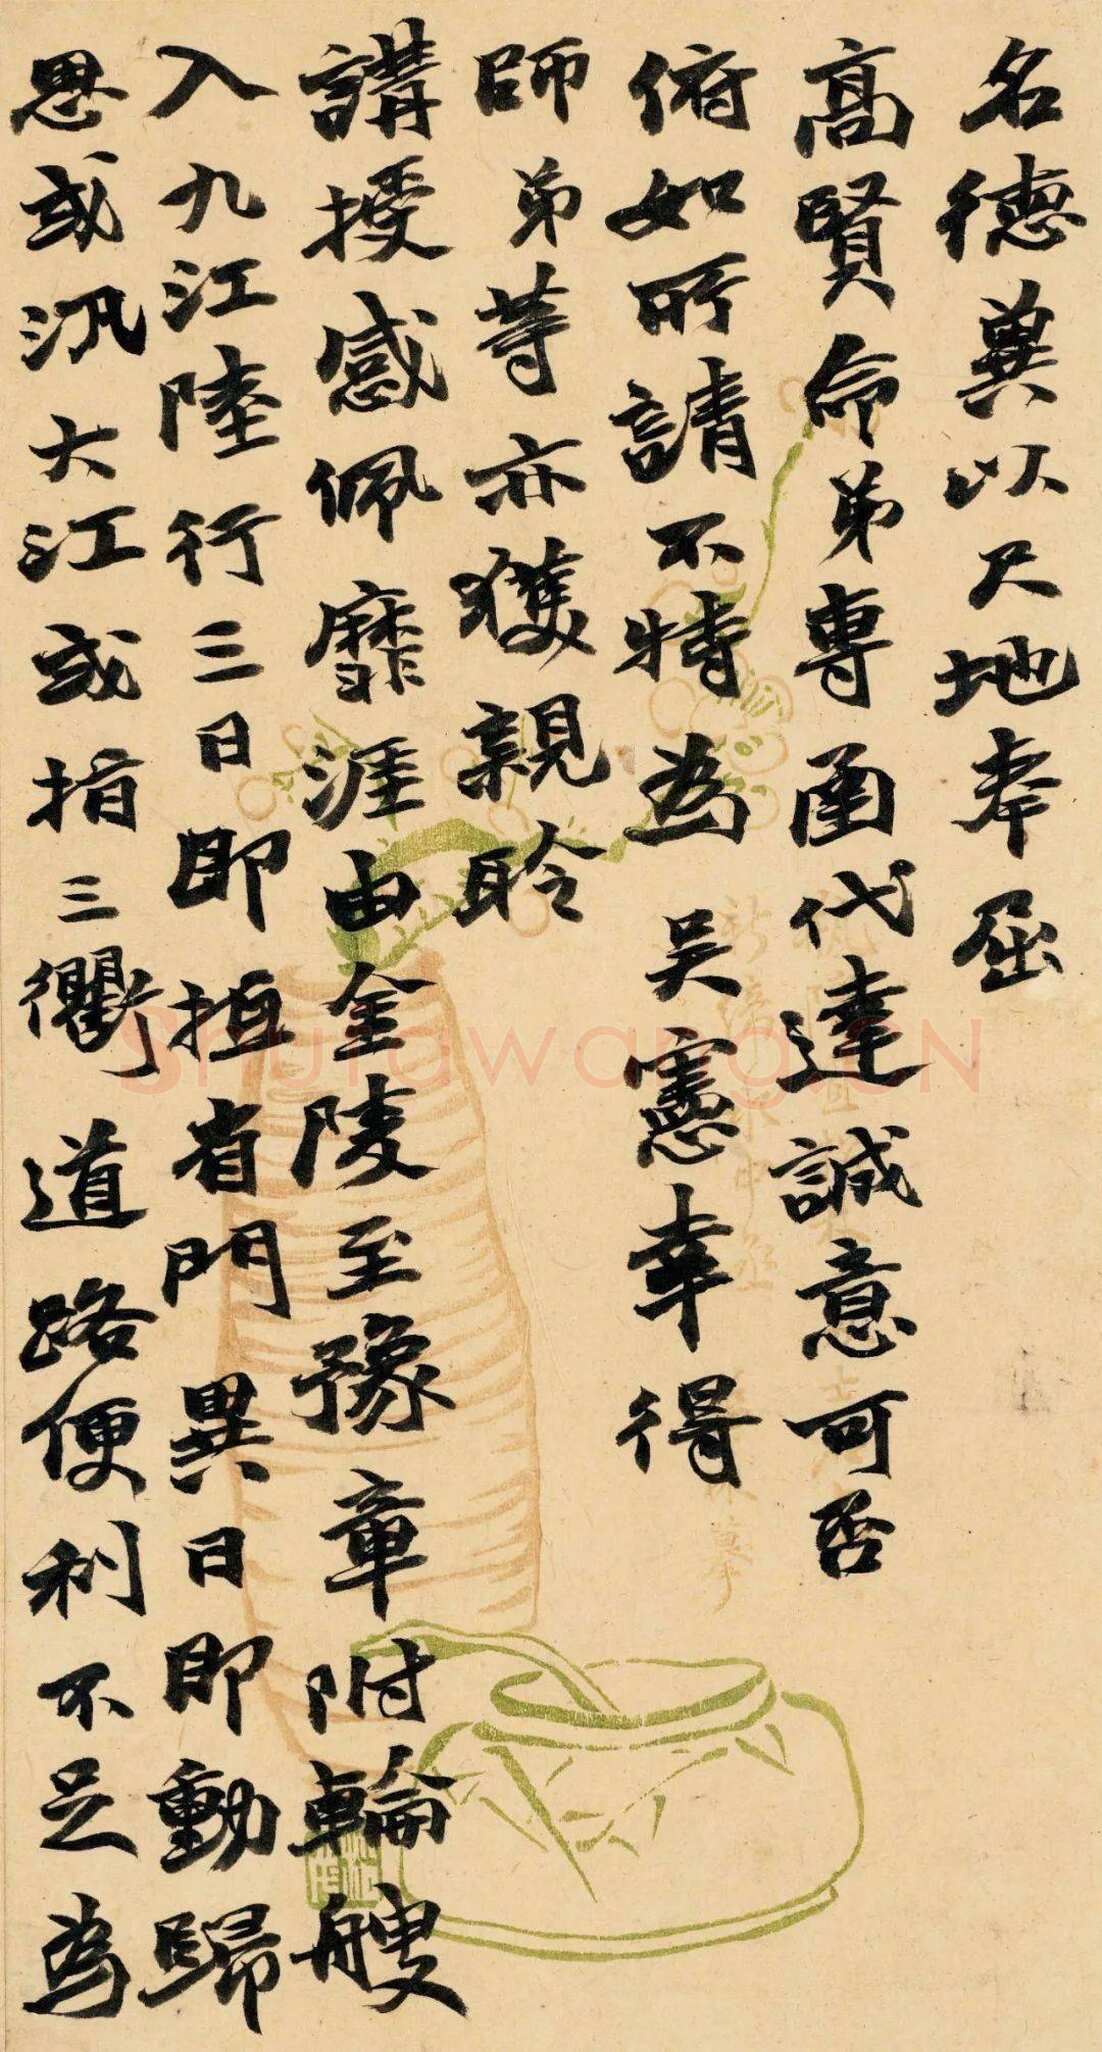 名德冀以尺地奉屈
高賢命弟專函代達誠意可否
俯如所請不特為吳憲幸得
師弟等亦獲親聆
講授感佩靡涯由金陵至豫章附輪艘
入九江陸行三日即抵省門異日即動歸
思或汎大江或指三衢道路便利不足為
ShufawangCN